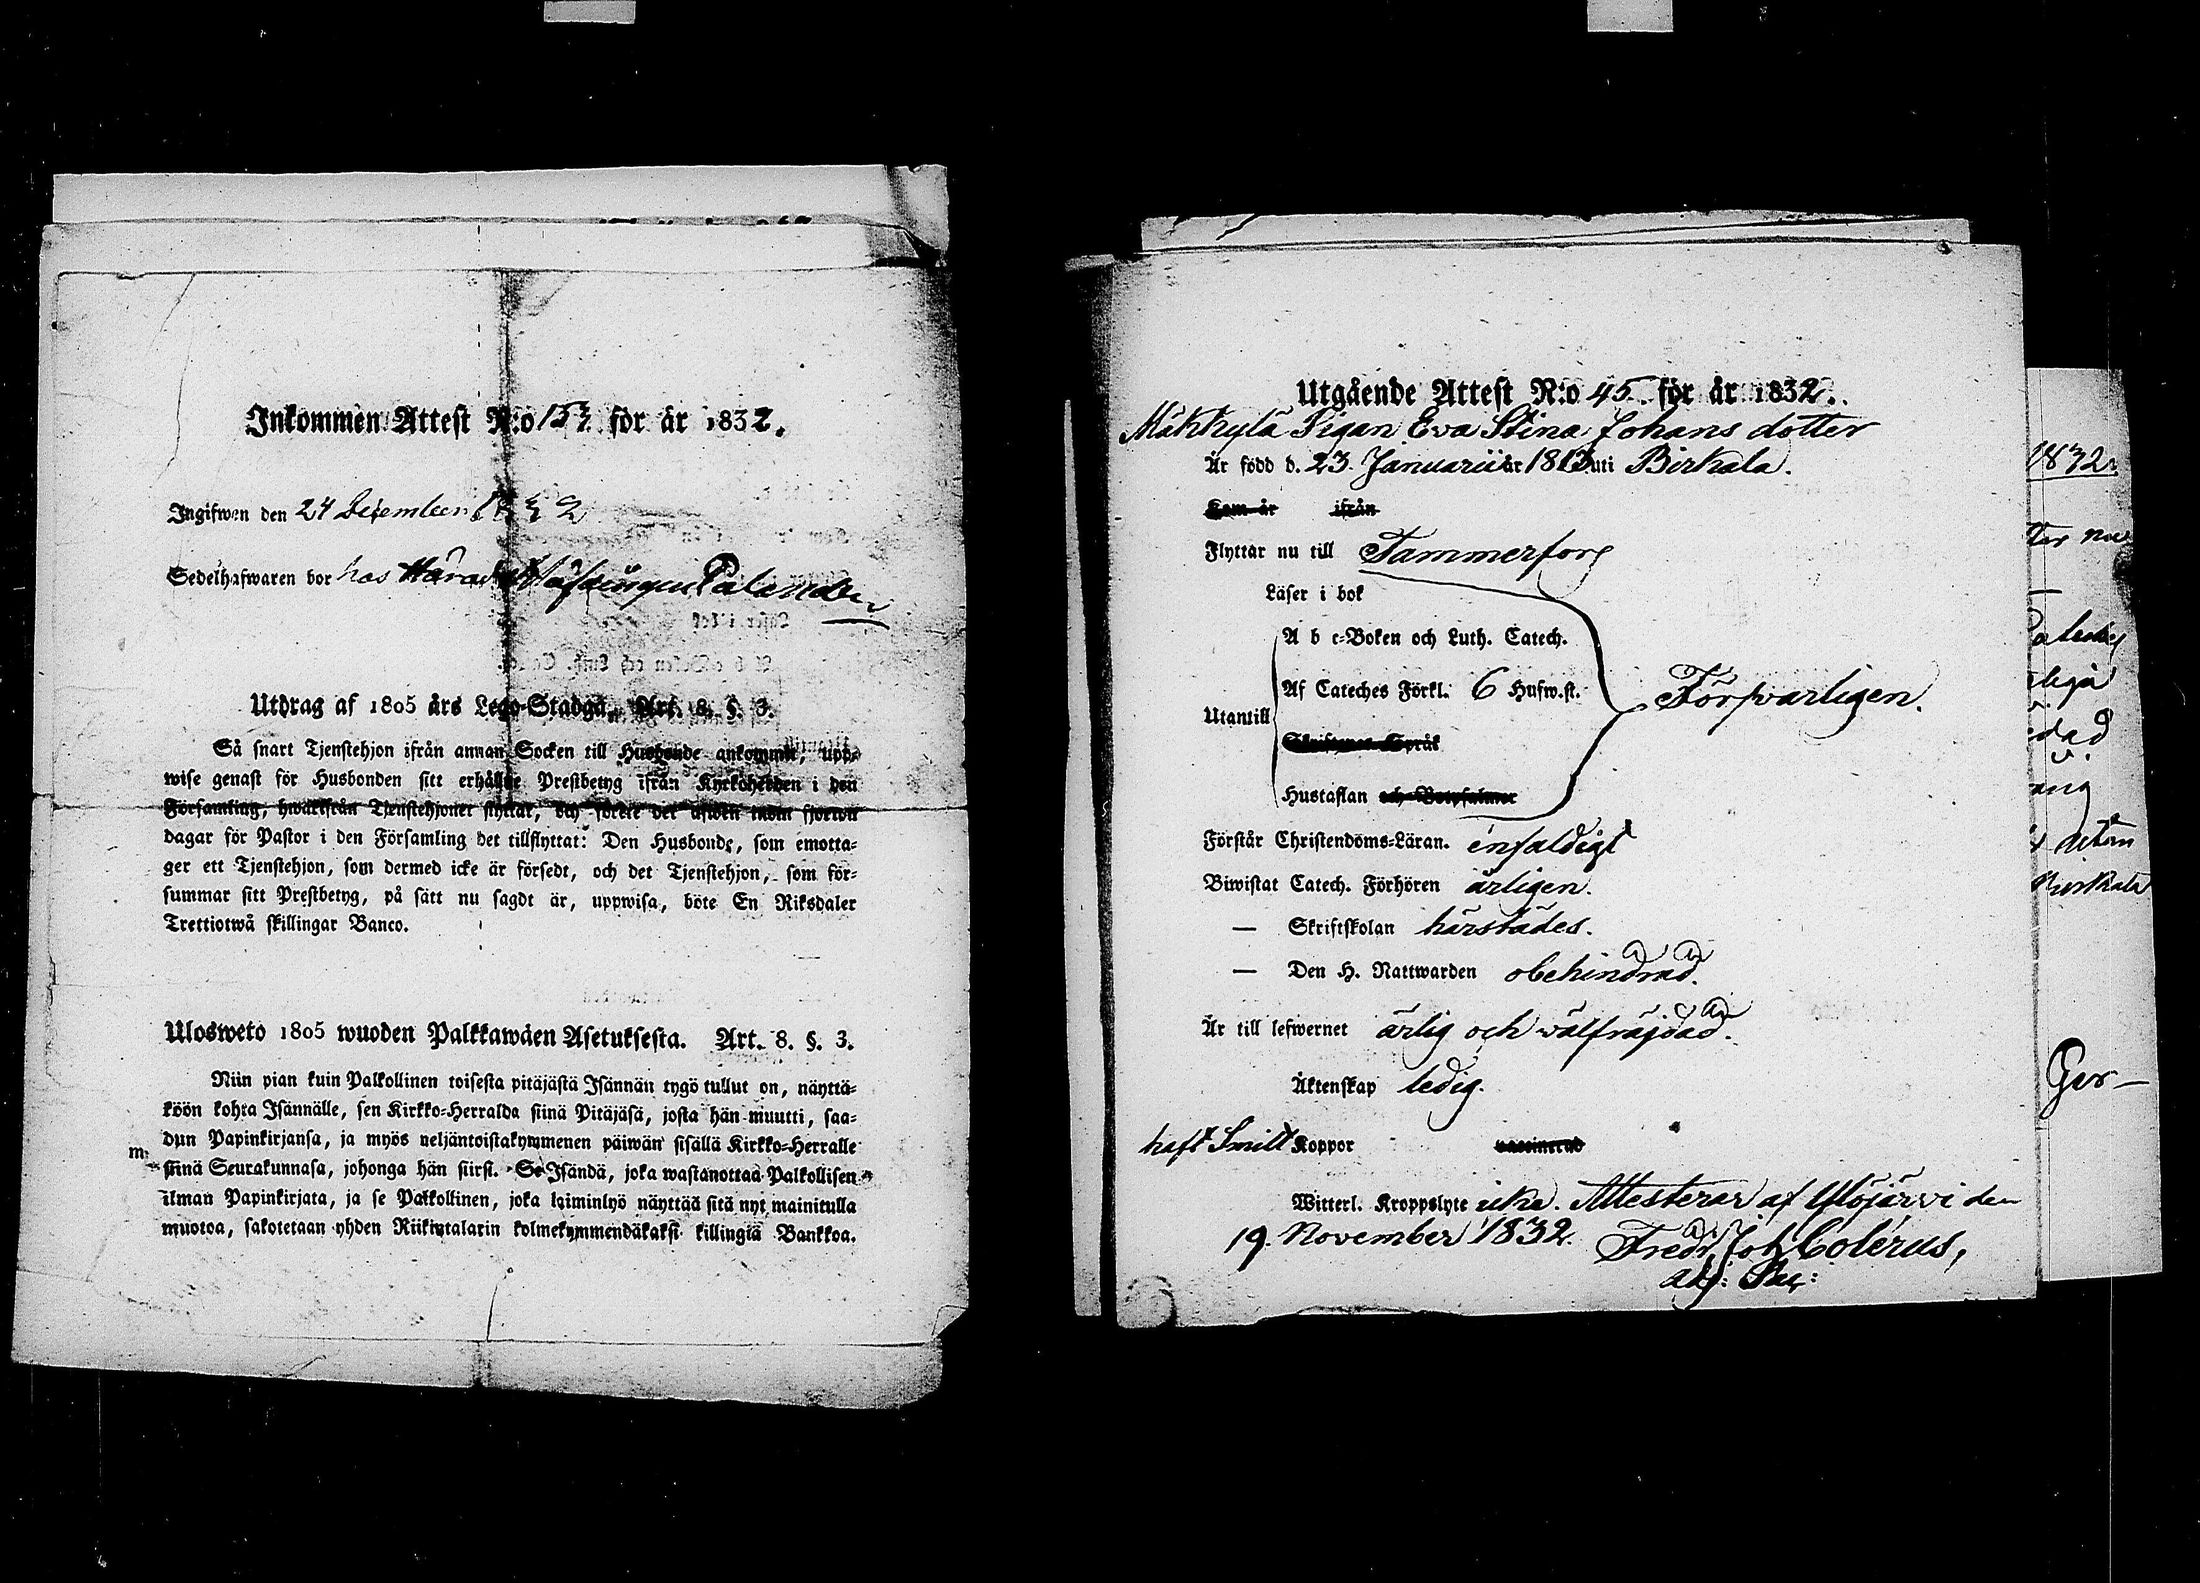 Inkommen Attest N:o 153 för år 1832.
Ingifwen den 24 December 1832
Sedelhafwaren bor hos Härads Höfdingen Palander
Utdrag af 1805 års Lego-Stadga, Art. 8. §. 3.
Så snart Tjenstehjon ifrån annan Socken till Husbonde ankommit, upp-
wise genast för Husbonden sitt erhållne Prestbetyg ifrån Kyrkoherden i den
Församling, hwarifrån Tjenstehjonet flyttar, och förete det äfwen inom fjorton
dagar för Pastor i den Församling det tillflyttat: Den Husbonde, som emotta-
ger ett Tjenstehjon, som dermed icke är försedt, och det Tjenstehjon, som för-
summar sitt Prestbetyg, på sätt nu sagdt är, uppwisa, böte En Riksdaler
Trettiotwå skillingar Banco.
Ulosweto 1805 wuoden Palkkawäen Asetuksesta. Art. 8. §. 3.
Niin pian kuin Palkollinen toisesta pitäjästä Isännän tygö tullut on, näyttä-
köön kohta Isännälle, sen Kirkko-Herralda siinä Pitäjäsä, josta hän muutti, saa-
dun Papinkirjansa, ja myös neljäntoistakymmenen päiwän sisällä Kirkko-Herralle
siinä Seurakunnasa, johonga hän siirst. Se Isändä, joka wastanottaa Palkollisen
ilman Papinkirjata, ja se Palkollinen, joka laiminlyö näyttää sitä nyt mainitulla
muotoa, sakotetaan yhden Riikintalarin kolmekymmendäkaksi killingiä Bankkoa.
Utgående Attest N:o 45 för år 1832.
Mäkkylä Pigan Eva Stina Johans dotter
Är född d. 23 Januarii år 1813 uti Birkala.
Kom år ifrån
Flyttar nu till Tammerfors
Läser i bok
A b c-Boken och Luth. Catech.
Af Cateches Förkl. 6 Hufw.st. Försvarligen.
Utantill
Språk
Hustaflan och Botpsalmer
Förstår Christendoms-Läran. enfaldigt
Biwistat Catech. Förhören ärligen.
— Skriftskolan härstädes.
— Den H. Nattwarden obehindrad.
Är till lefwernet ärlig och välfräjdad.
Äktenskap ledig.
haft Smitt Koppor vaccinerad
Witterl. Kroppslyte icke. Attesterar af Ylöjärvi den
19. November 1832. Fredr. Joh. Colérus,
adj: Sac:
1832.
Ger-